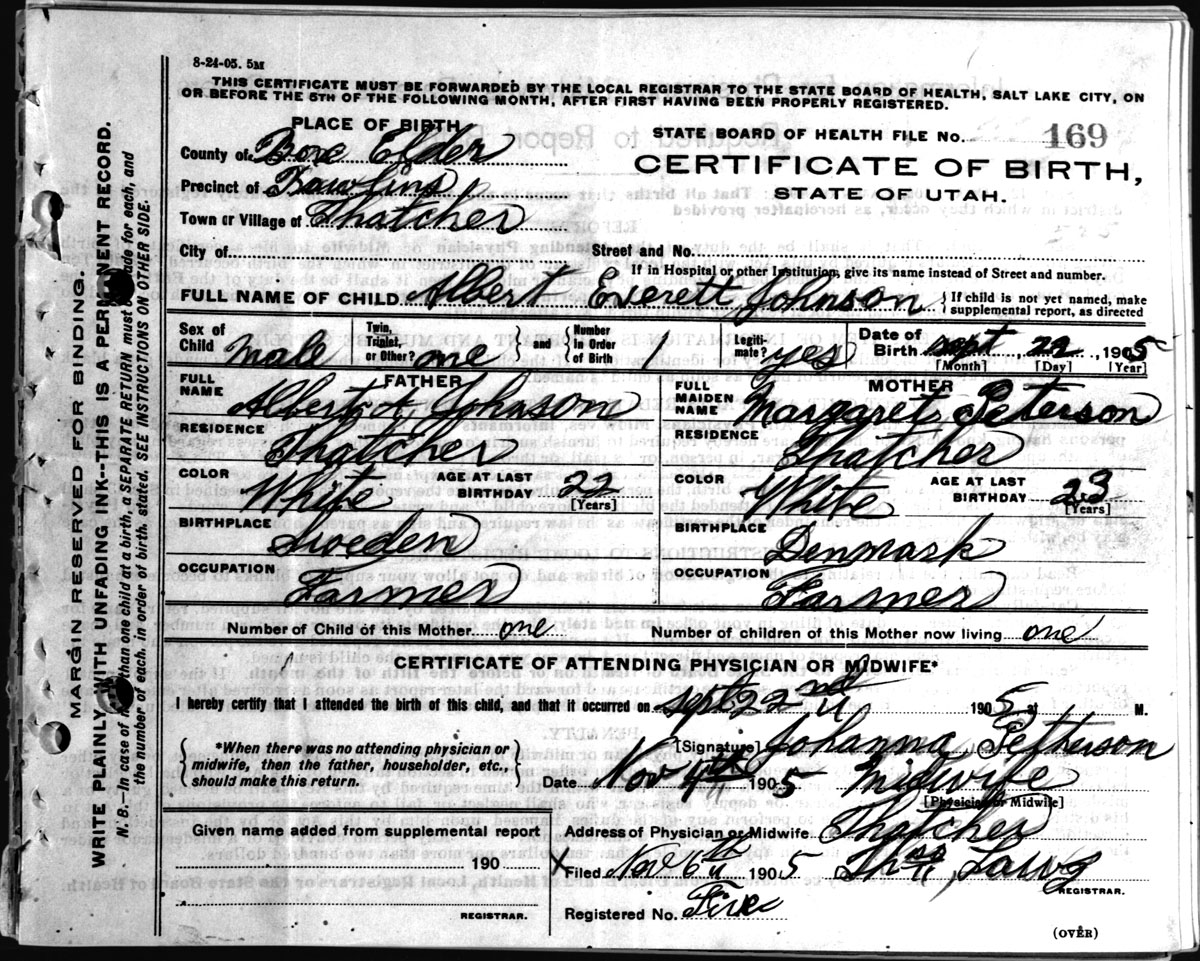 8-24-05. 5M
THIS CERTIFICATE MUST BE FORWARDED BY THE LOCAL REGISTRAR TO THE STATE BOARD OF HEALTH, SALT LAKE CITY, ON
OR BEFORE THE 5TH OF THE FOLLOWING MONTH, AFTER FIRST HAVING BEEN PROPERLY REGISTERED.
PLACE OF BIRTH
County of Box Elder
Precinct of
Town or Village of Thatcher
City of
STATE BOARD OF HEALTH FILE NO. 169
CERTIFICATE OF BIRTH,
STATE OF UTAH.
Street and No.
If in Hospital or other Institution, give its name instead of Street and number.
FULL NAME OF CHILD Albert Everett Johnson } If child is not yet named, make supplemental report, as directed
Sex of Child male Twin, Triplet, or Other? one } and { Number in Order of Birth 1 Legiti-mate? yes Date of Birth sept, 22, 1905
[Month] [Day] [Year]
FATHER
FULL NAME Albert A, Johnson
RESIDENCE Thatcher
COLOR White AGE AT LAST BIRTHDAY 22 [Years]
BIRTHPLACE Sweden
OCCUPATION Farmer
MOTHER
FULL MAIDEN NAME Margaret Peterson
RESIDENCE Thatcher
COLOR White AGE AT LAST BIRTHDAY 23 [Years]
BIRTHPLACE Denmark
OCCUPATION Farmer
Number of Child of this Mother one Number of children of this Mother now living one
CERTIFICATE OF ATTENDING PHYSICIAN OR MIDWIFE*
I hereby certify that I attended the birth of this child, and that it occurred on sept 22nd 1905 at M.
{ *When there was no attending physician or
midwife, then the father, householder, etc.,
should make this return. }
[Signature] Johanna Petterson
Date Nov 4th 1905 Midwife
[Physician or Midwife]
Given name added from supplemental report
190
REGISTRAR.
Address of Physician or Midwife Thatcher
X Filed Nov 6th 1905
REGISTRAR.
Registered No. Five
(OVER)
MARGIN RESERVED FOR BINDING.
WRITE PLAINLY WITH UNFADING INK--THIS IS A PERMANENT RECORD.
N. B.—In case of than one child at a birth, a SEPARATE RETURN must made for each, and
the number of each, in order of birth, stated. SEE INSTRUCTIONS ON OTHER SIDE.